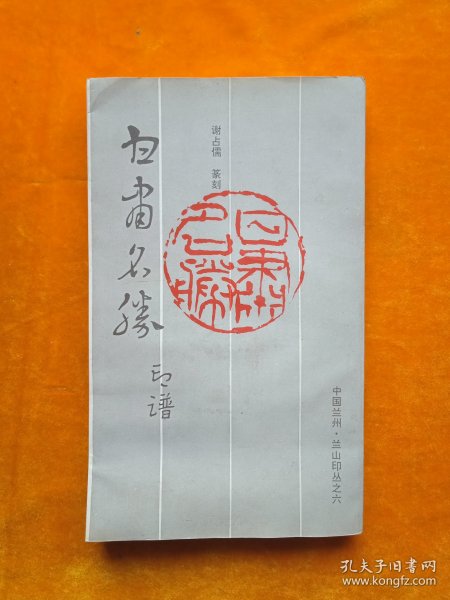 甘肃名勝
印谱
谢占儒 篆刻
甘肃名胜
中国兰州·兰山印丛之六
孔夫子旧书网
www.kongfz.com